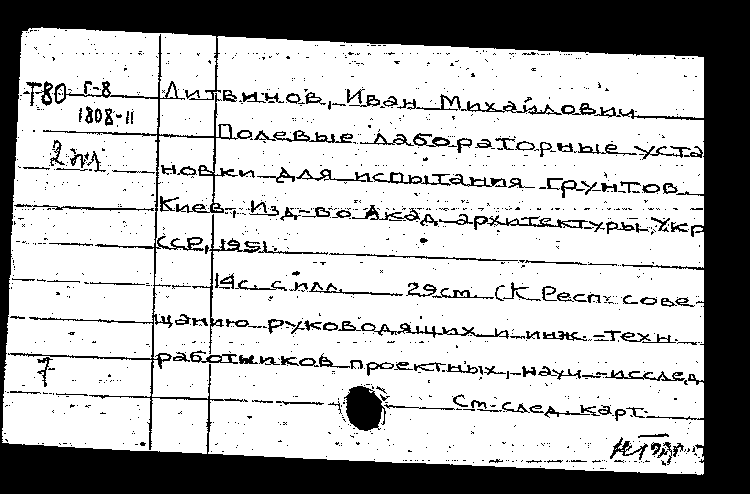 Т80 Г-8 Литвинов, Иван Михайлович
1808-11
Полевые лабораторные уста
2 экз
новки для испытания грунтов.
Киев, Изд-во Акад. архитектуры Укр
ССР, 1951.
14с. с илл. 29см. (К Респ. сове-
щанию руководящих и инж.-техн.
работников проектных, науч.-исслед
7
См. след. карт.